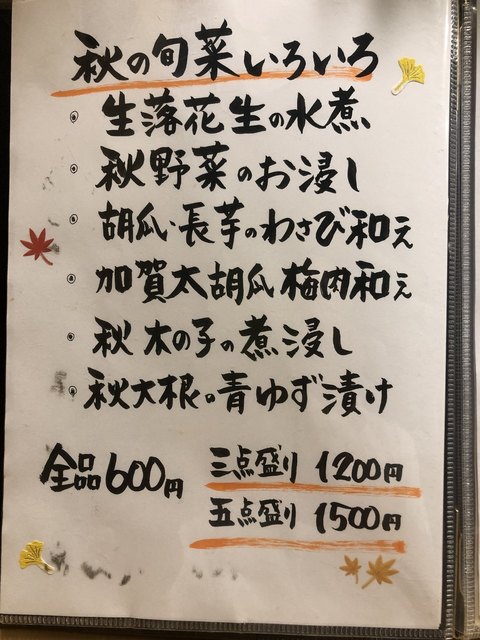 秋の旬菜いろいろ
生落花生の水煮
秋野菜のお浸し
胡瓜・長芋のわさび和え
加賀太胡瓜梅肉和え
秋木の子の煮浸し
秋大根の青ゆず漬け
全品600円
三点盛り 1200円
五点盛り 1500円